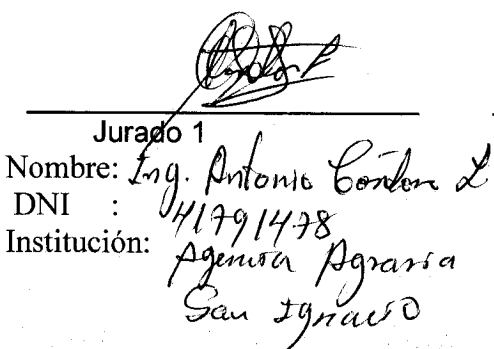 Jurado 1
Nombre: Ing. Antonio L
DNI : 41791478
Institución: Agencia Agraria
San Ignacio